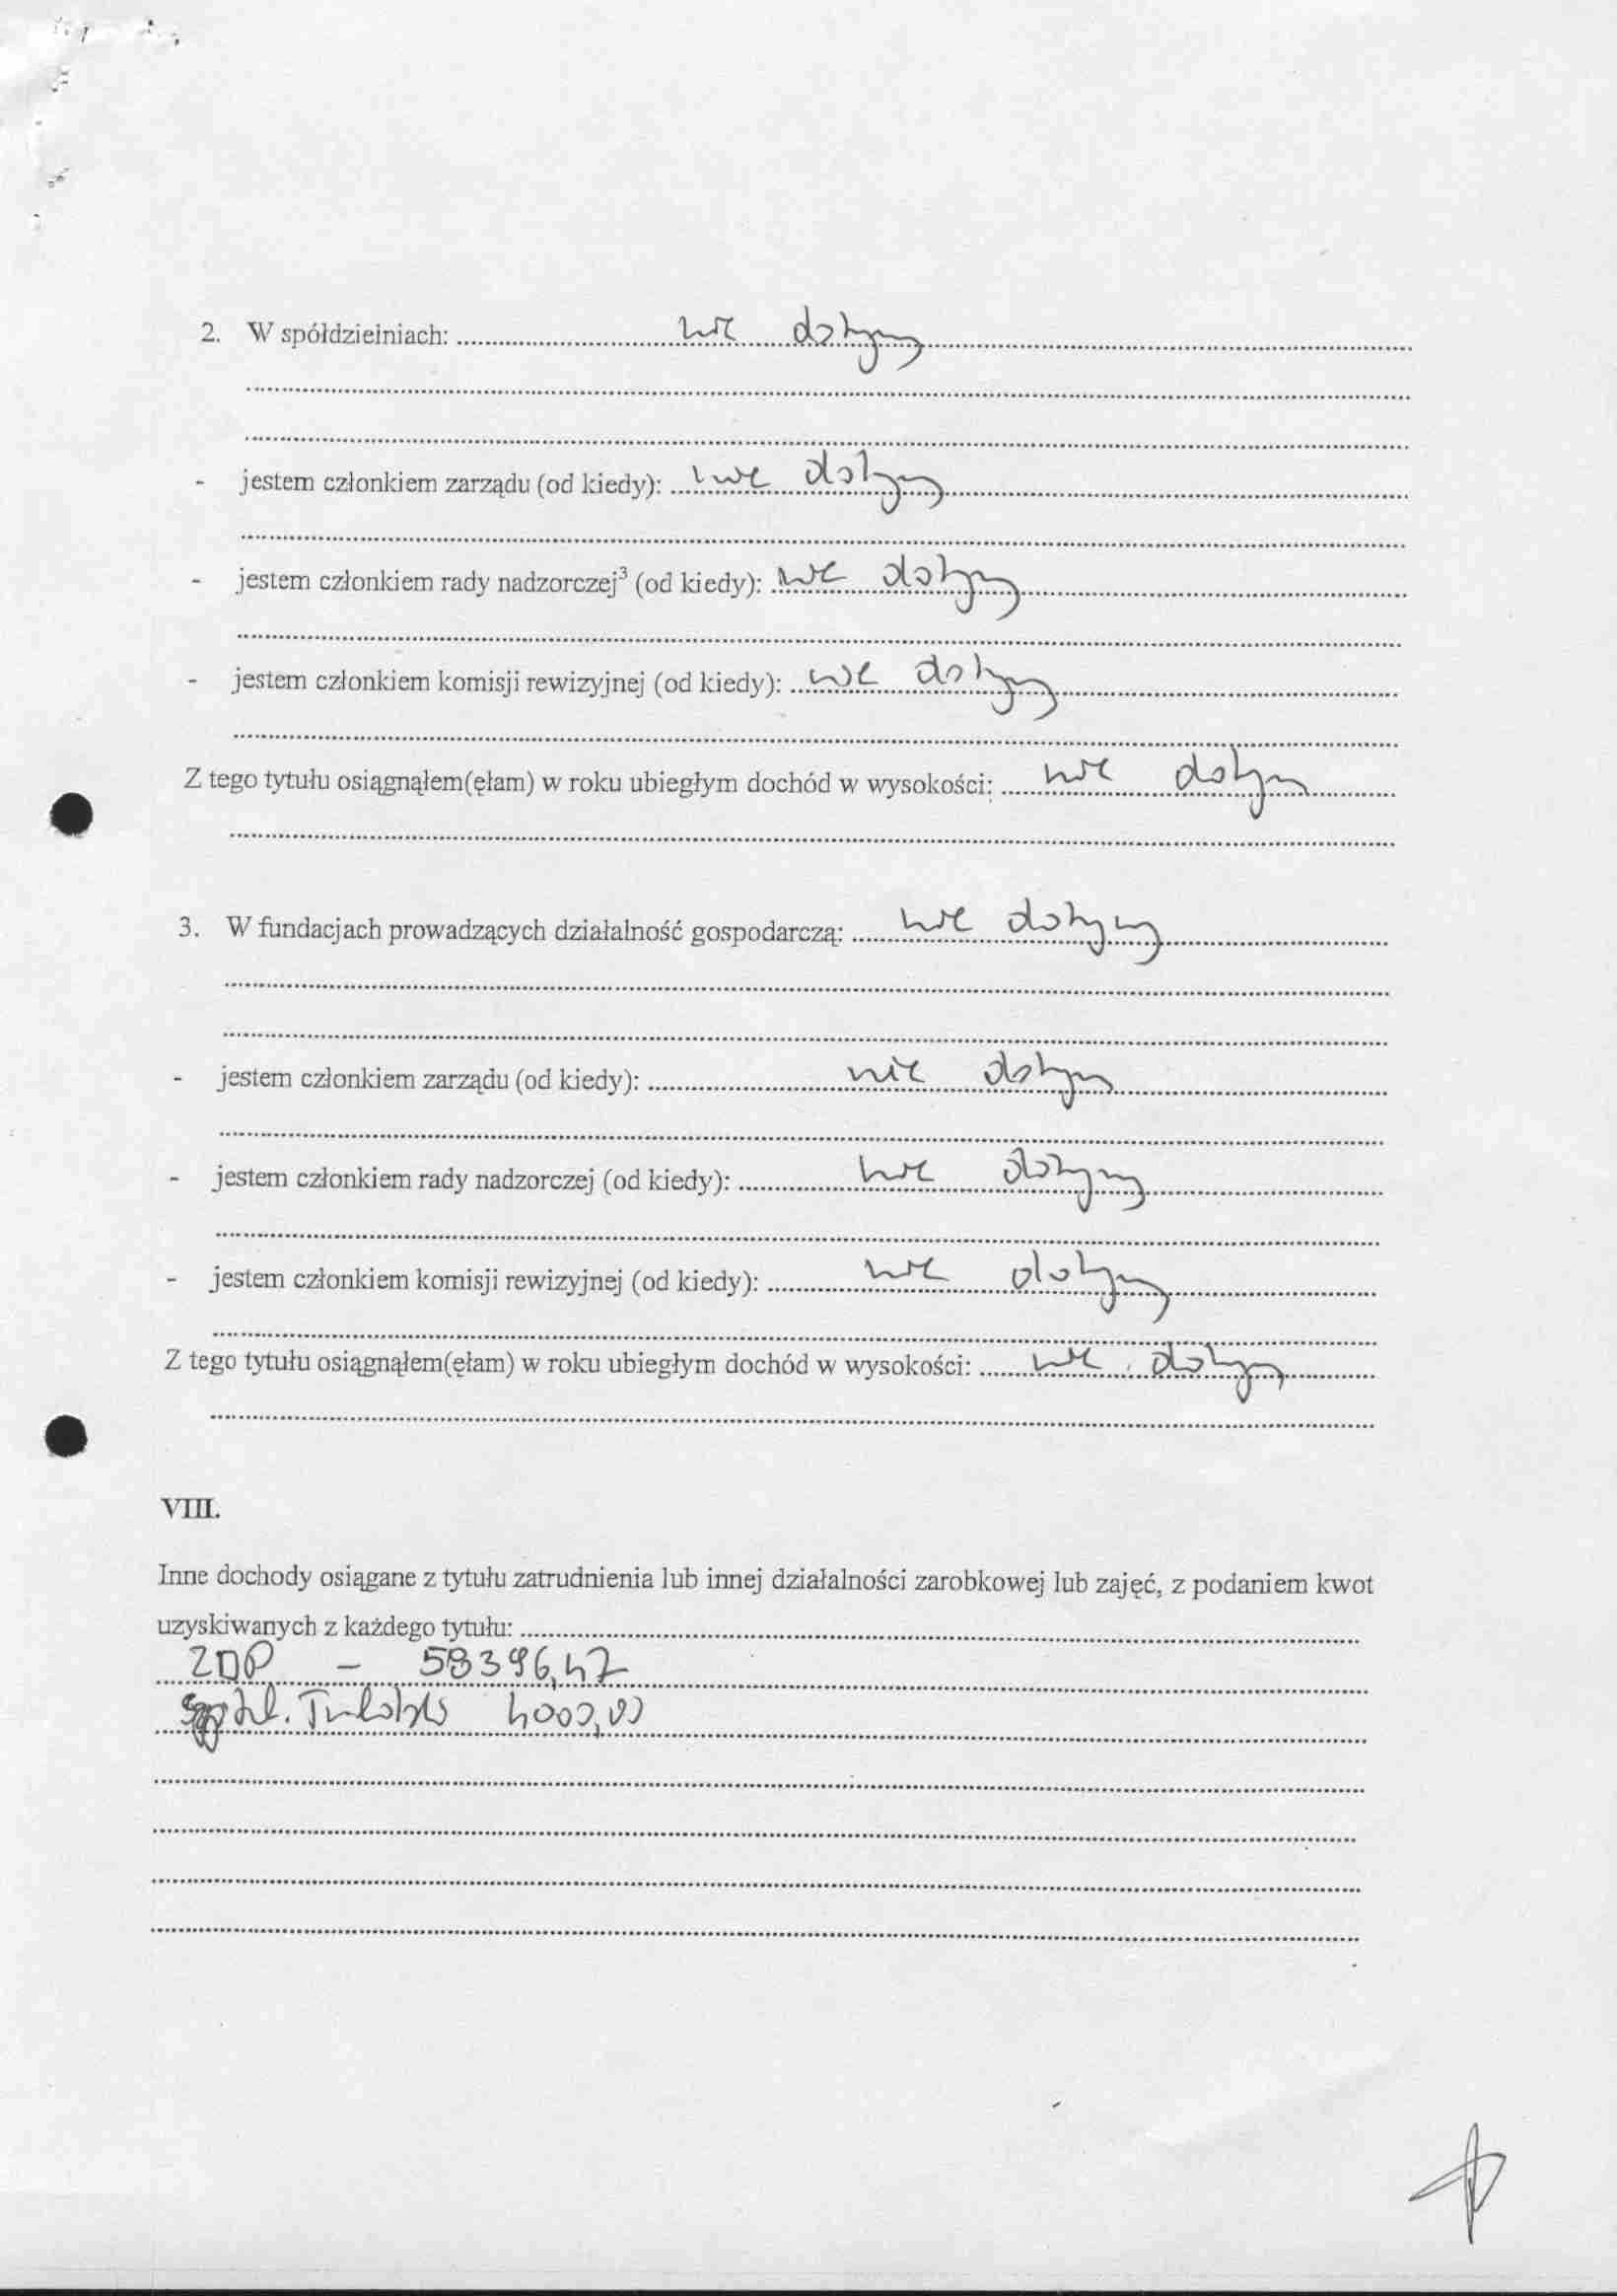 2. W spółdzielniach: nie dotyczy
- jestem członkiem zarządu (od kiedy): nie dotyczy
- jestem członkiem rady nadzorczej³ (od kiedy): nie dotyczy
- jestem członkiem komisji rewizyjnej (od kiedy): nie dotyczy
Z tego tytułu osiągnąłem(ęłam) w roku ubiegłym dochód w wysokości: nie dotyczy
3. W fundacjach prowadzących działalność gospodarczą: nie dotyczy
- jestem członkiem zarządu (od kiedy): nie dotyczy
- jestem członkiem rady nadzorczej (od kiedy): nie dotyczy
- jestem członkiem komisji rewizyjnej (od kiedy): nie dotyczy
Z tego tytułu osiągnąłem(ęłam) w roku ubiegłym dochód w wysokości: nie dotyczy
VIII.
Inne dochody osiągane z tytułu zatrudnienia lub innej działalności zarobkowej lub zajęć, z podaniem kwot
uzyskiwanych z każdego tytułu:
ZDP - 58396,47
4000,00